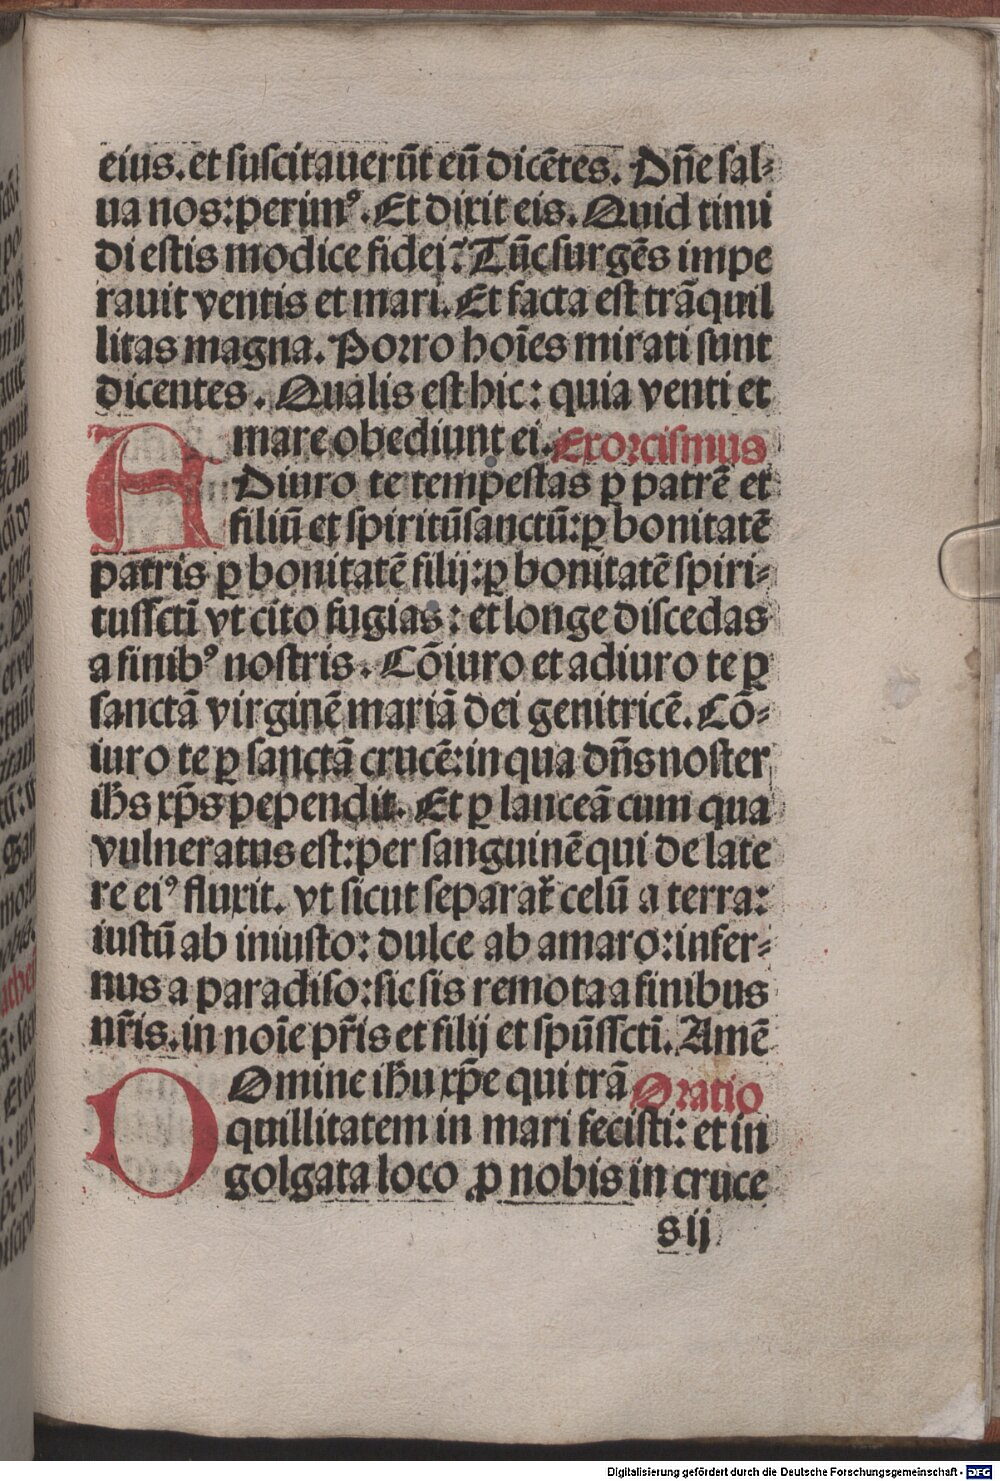 eius. et suscitauerūt eū dicētes. Dn̄e sal⸗
ua nos: perimꝰ. Et dixit eis. Quid timi
di estis modice fidei? Tūc surgēs impe
rauit ventis et mari. Et facta est trāquil
litas magna. Porro hoīes mirati sunt
dicentes. Qualis est hic: quia venti et
mare obediunt ei. Exorcismus
ADiuro te tempestas ꝑ patrē et
filiū et spiritūsanctū: ꝑ bonitatē
patris ꝑ bonitatē filij: ꝑ bonitatē spiri⸗
tussctī vt cito fugias: et longe discedas
a finibꝰ nostris. Cōiuro et adiuro te ꝑ
sanctā virginē mariā dei genitricē. Cō⸗
iuro te ꝑ sanctā crucē: in qua dn̄s noster
ihs xp̄s pependit. Et ꝑ lanceā cum qua
vulneratus est: per sanguinē qui de late
re eiꝰ fluxit. vt sicut separat̄ celū a terra:
iustū ab iniusto: dulce ab amaro: infer⸗
nus a paradiso: sic sis remota a finibus
nr̄is. in noīe pr̄is et filij et spūssctī. Amē
DOmine ihu xp̄e qui trā Oratio
quillitatem in mari fecisti: et in
golgata loco ꝓ nobis in cruce
s ij
Digitalisierung gefördert durch die Deutsche Forschungsgemeinschaft - DFG